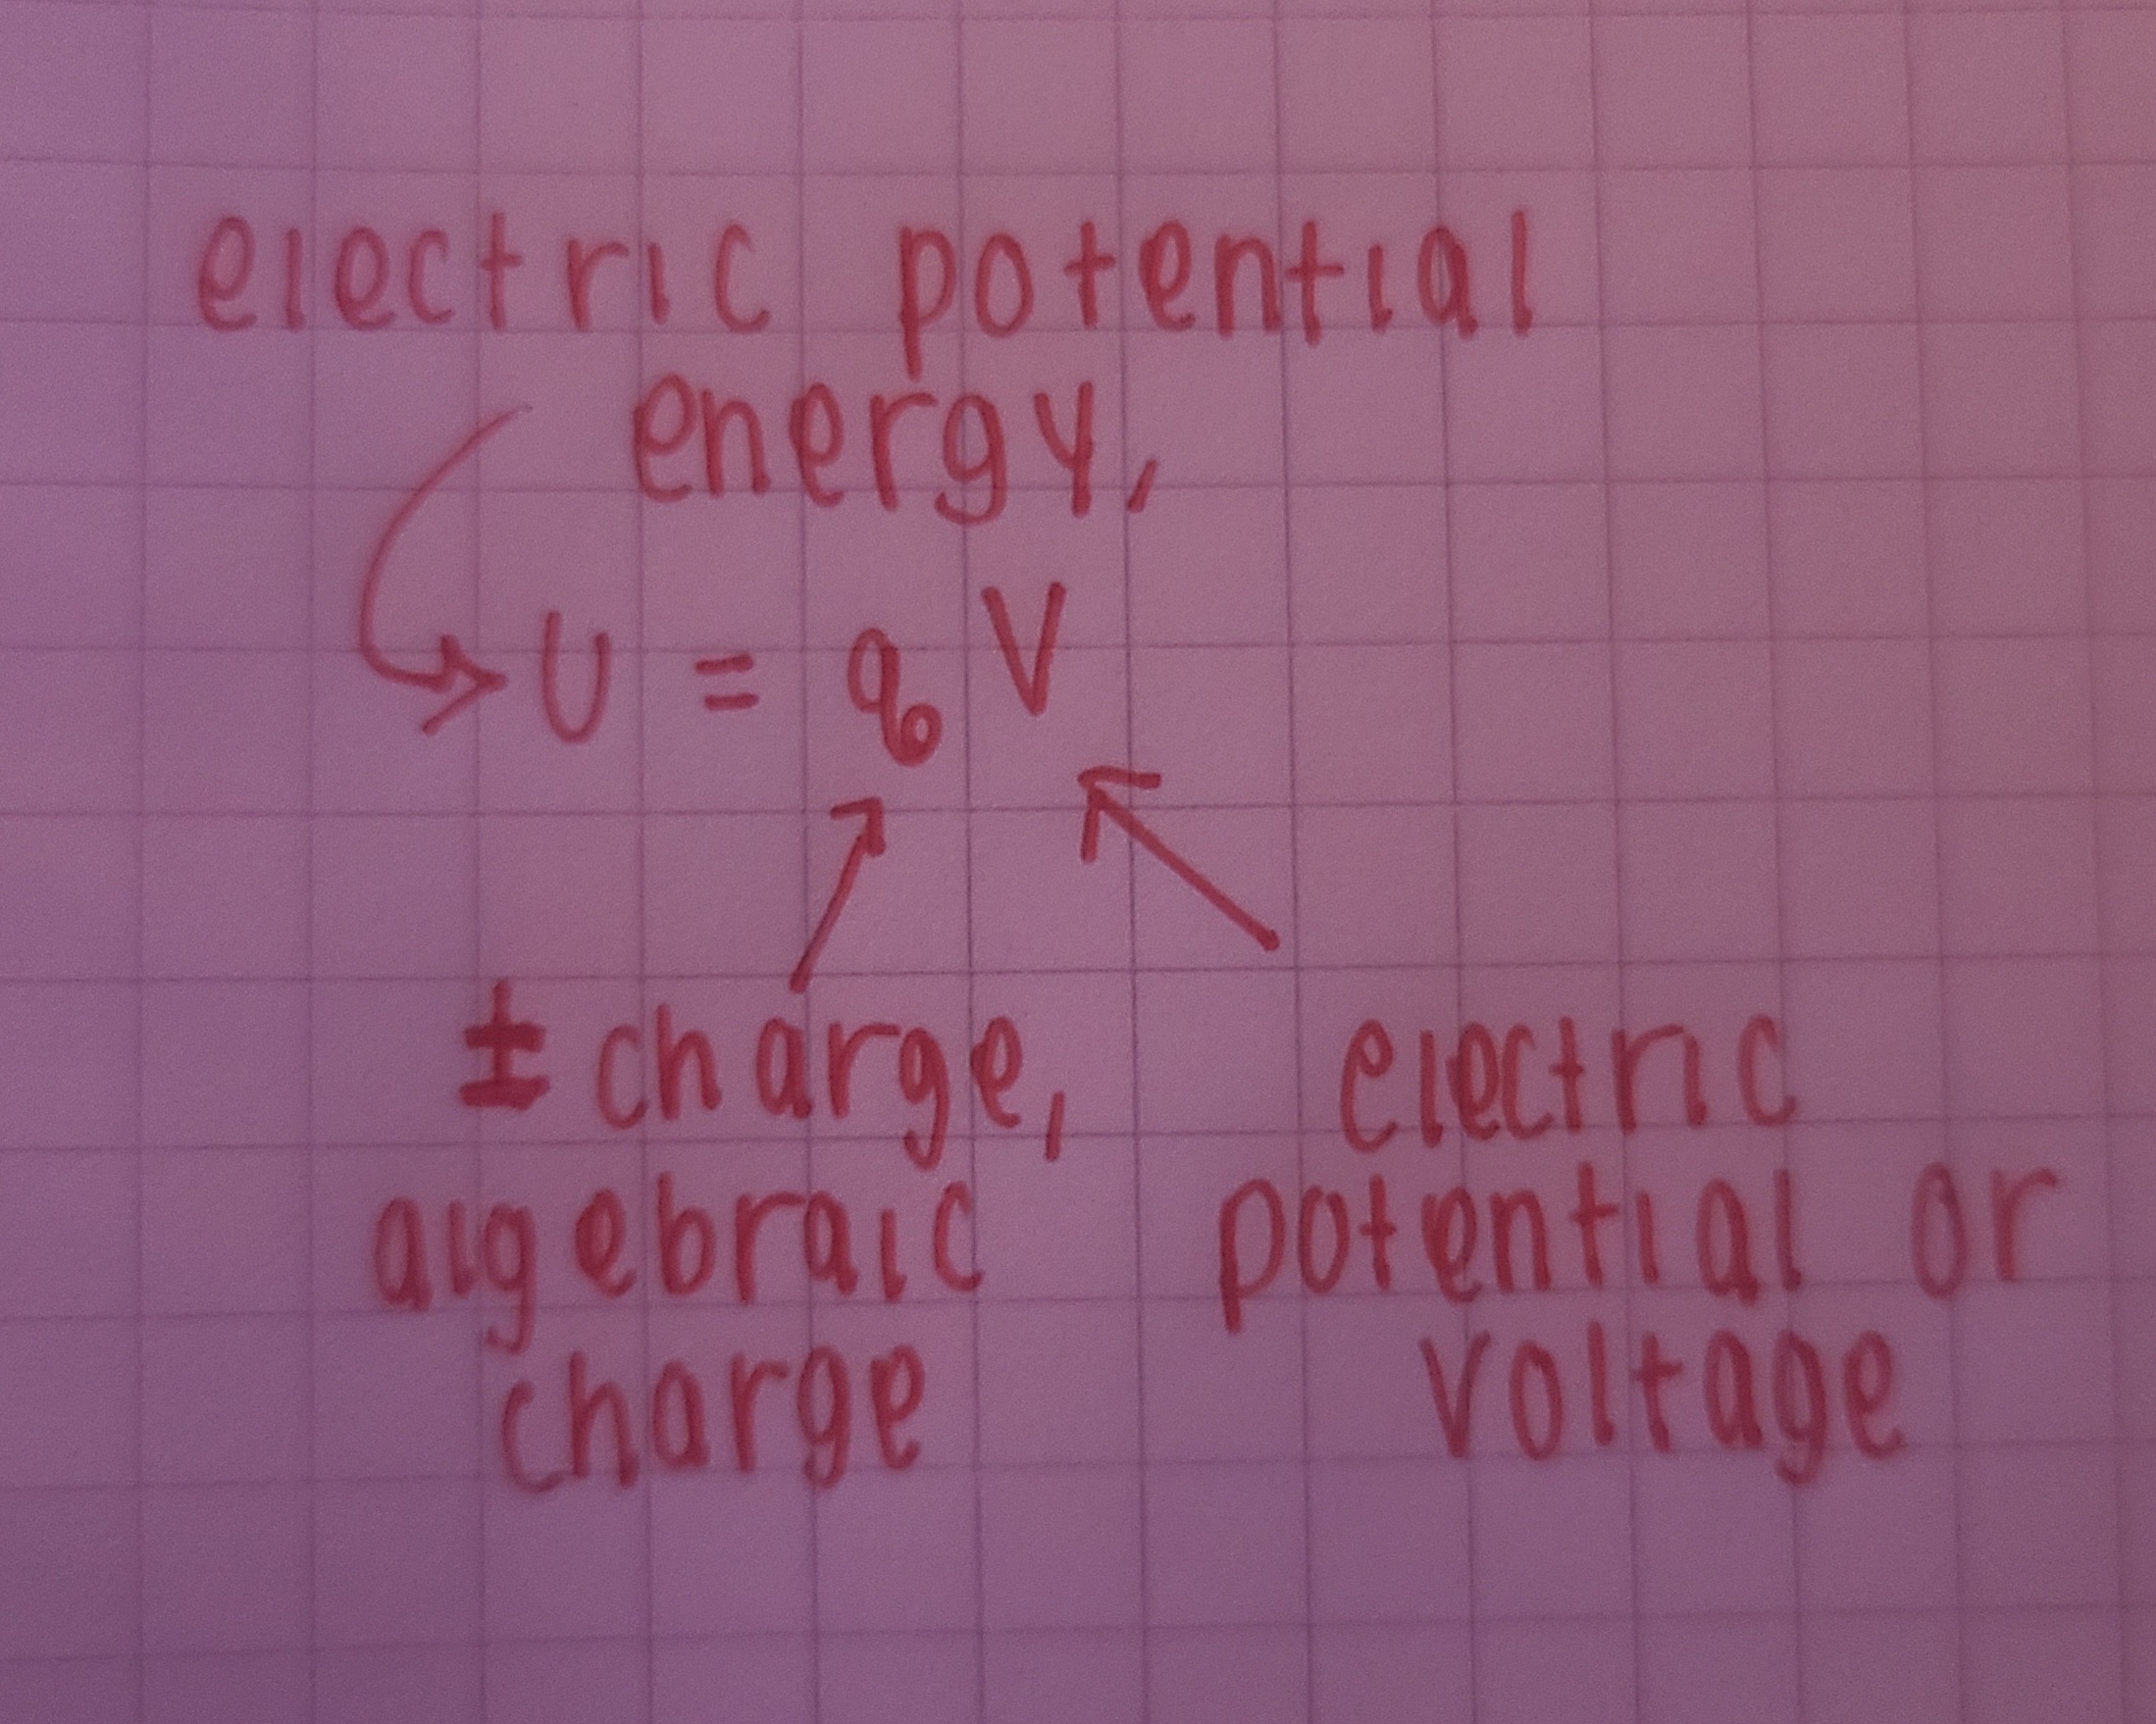 electric potential
energy,
U = q V
± charge,
algebraic
charge
electric
potential or
voltage